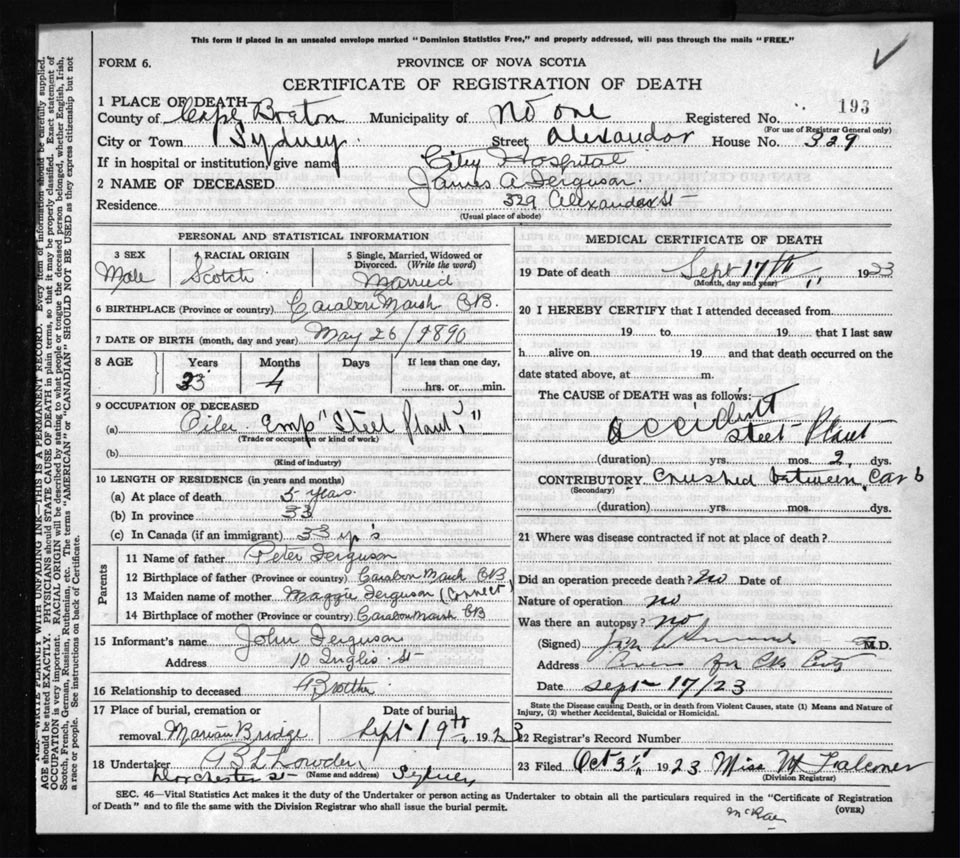 This form if placed in an unsealed envelope marked "Dominion Statistics Free," and properly addressed, will pass through the mails "FREE."
FORM 6. PROVINCE OF NOVA SCOTIA
CERTIFICATE OF REGISTRATION OF DEATH
193
1 PLACE OF DEATH—
County of Cape Breton Municipality of No one Registered No.
(For use of Registrar General only)
City or Town Sydney. Street Alexandor House No. 329
If in hospital or institution, give name City Hospital
2 NAME OF DECEASED James A Ferguson.
Residence 329 Alexandor St
(Usual place of abode)
PERSONAL AND STATISTICAL INFORMATION
3 SEX 4 RACIAL ORIGIN 5 Single, Married, Widowed or Divorced. (Write the word)
Male Scotch Married
6 BIRTHPLACE (Province or country) Carabon Marsh CB.
7 DATE OF BIRTH (month, day and year) May 26/1890
8 AGE Years Months Days If less than one day,
33 4 hrs. or min.
9 OCCUPATION OF DECEASED
(a) Oiler Emp "Steel Plant"
(Trade or occupation or kind of work)
(b)
(Kind of industry)
10 LENGTH OF RESIDENCE (in years and months)
(a) At place of death 5 years
(b) In province 33
(c) In Canada (if an immigrant) 33 yr's
Parents
11 Name of father Peter Ferguson
12 Birthplace of father (Province or country) Carabon Marsh CB
13 Maiden name of mother Maggie Ferguson (Correct)
14 Birthplace of mother (Province or country) Carabon Marsh CB
15 Informant's name John Ferguson
Address 10 Inglis St
16 Relationship to deceased A Brother
17 Place of burial, cremation or removal Marian Bridge Date of burial Sept 19th 1923
18 Undertaker Lowden
Dorchester St (Name and address) Sydney
MEDICAL CERTIFICATE OF DEATH
19 Date of death Sept 17th 1923
(Month, day and year)
20 I HEREBY CERTIFY that I attended deceased from
19 to 19 that I last saw
h alive on 19 and that death occurred on the
date stated above, at m.
The CAUSE of DEATH was as follows:
Accident
Steel Plant
(duration) yrs. mos. 2 dys.
CONTRIBUTORY Crushed between Cars
(Secondary)
(duration) yrs. mos. dys.
21 Where was disease contracted if not at place of death?
Did an operation precede death? No Date of
Nature of operation no
Was there an autopsy? no
(Signed) M.D.
Address
Date Sept 17/23
State the Disease causing Death, or in death from Violent Causes, state (1) Means and Nature of Injury, (2) whether Accidental, Suicidal or Homicidal.
22 Registrar's Record Number
23 Filed Oct 31 1923 Miss M Falconer
(Division Registrar)
SEC. 46—Vital Statistics Act makes it the duty of the Undertaker or person acting as Undertaker to obtain all the particulars required in the "Certificate of Registration
of Death" and to file the same with the Division Registrar who shall issue the burial permit. (OVER)
McRae
WRITE PLAINLY WITH UNFADING INK—THIS IS A PERMANENT RECORD. Every item of information should be carefully supplied.
AGE should be stated EXACTLY. PHYSICIANS should STATE CAUSE OF DEATH in plain terms, so that it may be properly classified. Exact statement of
OCCUPATION is very important. RACIAL ORIGIN will be described by stating to what people or tongue the deceased person belonged, whether English, Irish,
Scotch, French, German, Russian, Ruthenian, etc. The terms "AMERICAN" or "CANADIAN" SHOULD NOT BE USED as they express citizenship but not
a race or people. See instructions on back of Certificate.